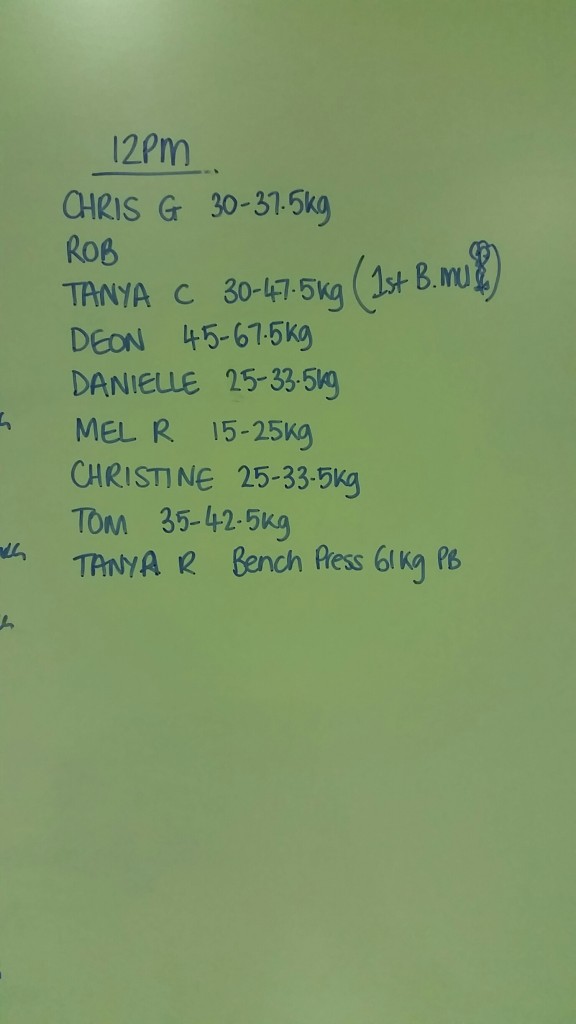 12PM
CHRIS G 30-37.5kg
ROB
TANYA C 30-47.5kg (1st B.mu)
DEON 45-67.5kg
DANIELLE 25-33.5kg
MEL R 15-25kg
CHRISTINE 25-33.5kg
TOM 35-42.5kg
TANYA R Bench Press 61kg PB